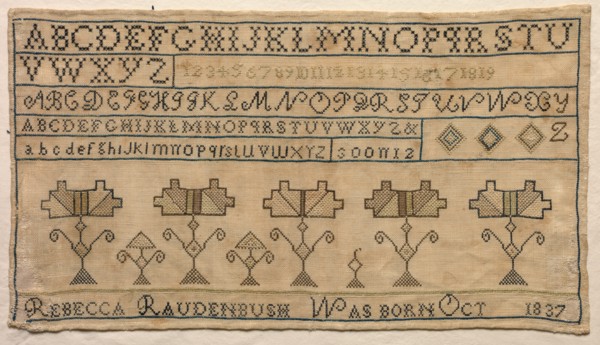 ABCDEFGHIJKLMNOPQRSTU
VWXYZ 1 2 3 4 5 6 7 8 9 10 11 12 13 14 15 16 17 18 19
ABCDEFGHIJKLMNOPQRSTUVWXY
Z
ABCDEFGHIJKLMNOPQRSTUVWXYZ&
abcdefghiJklmnopqrstUVWXYZ
REBECCA RAUDENBUSH WAS BORN OCT 1837